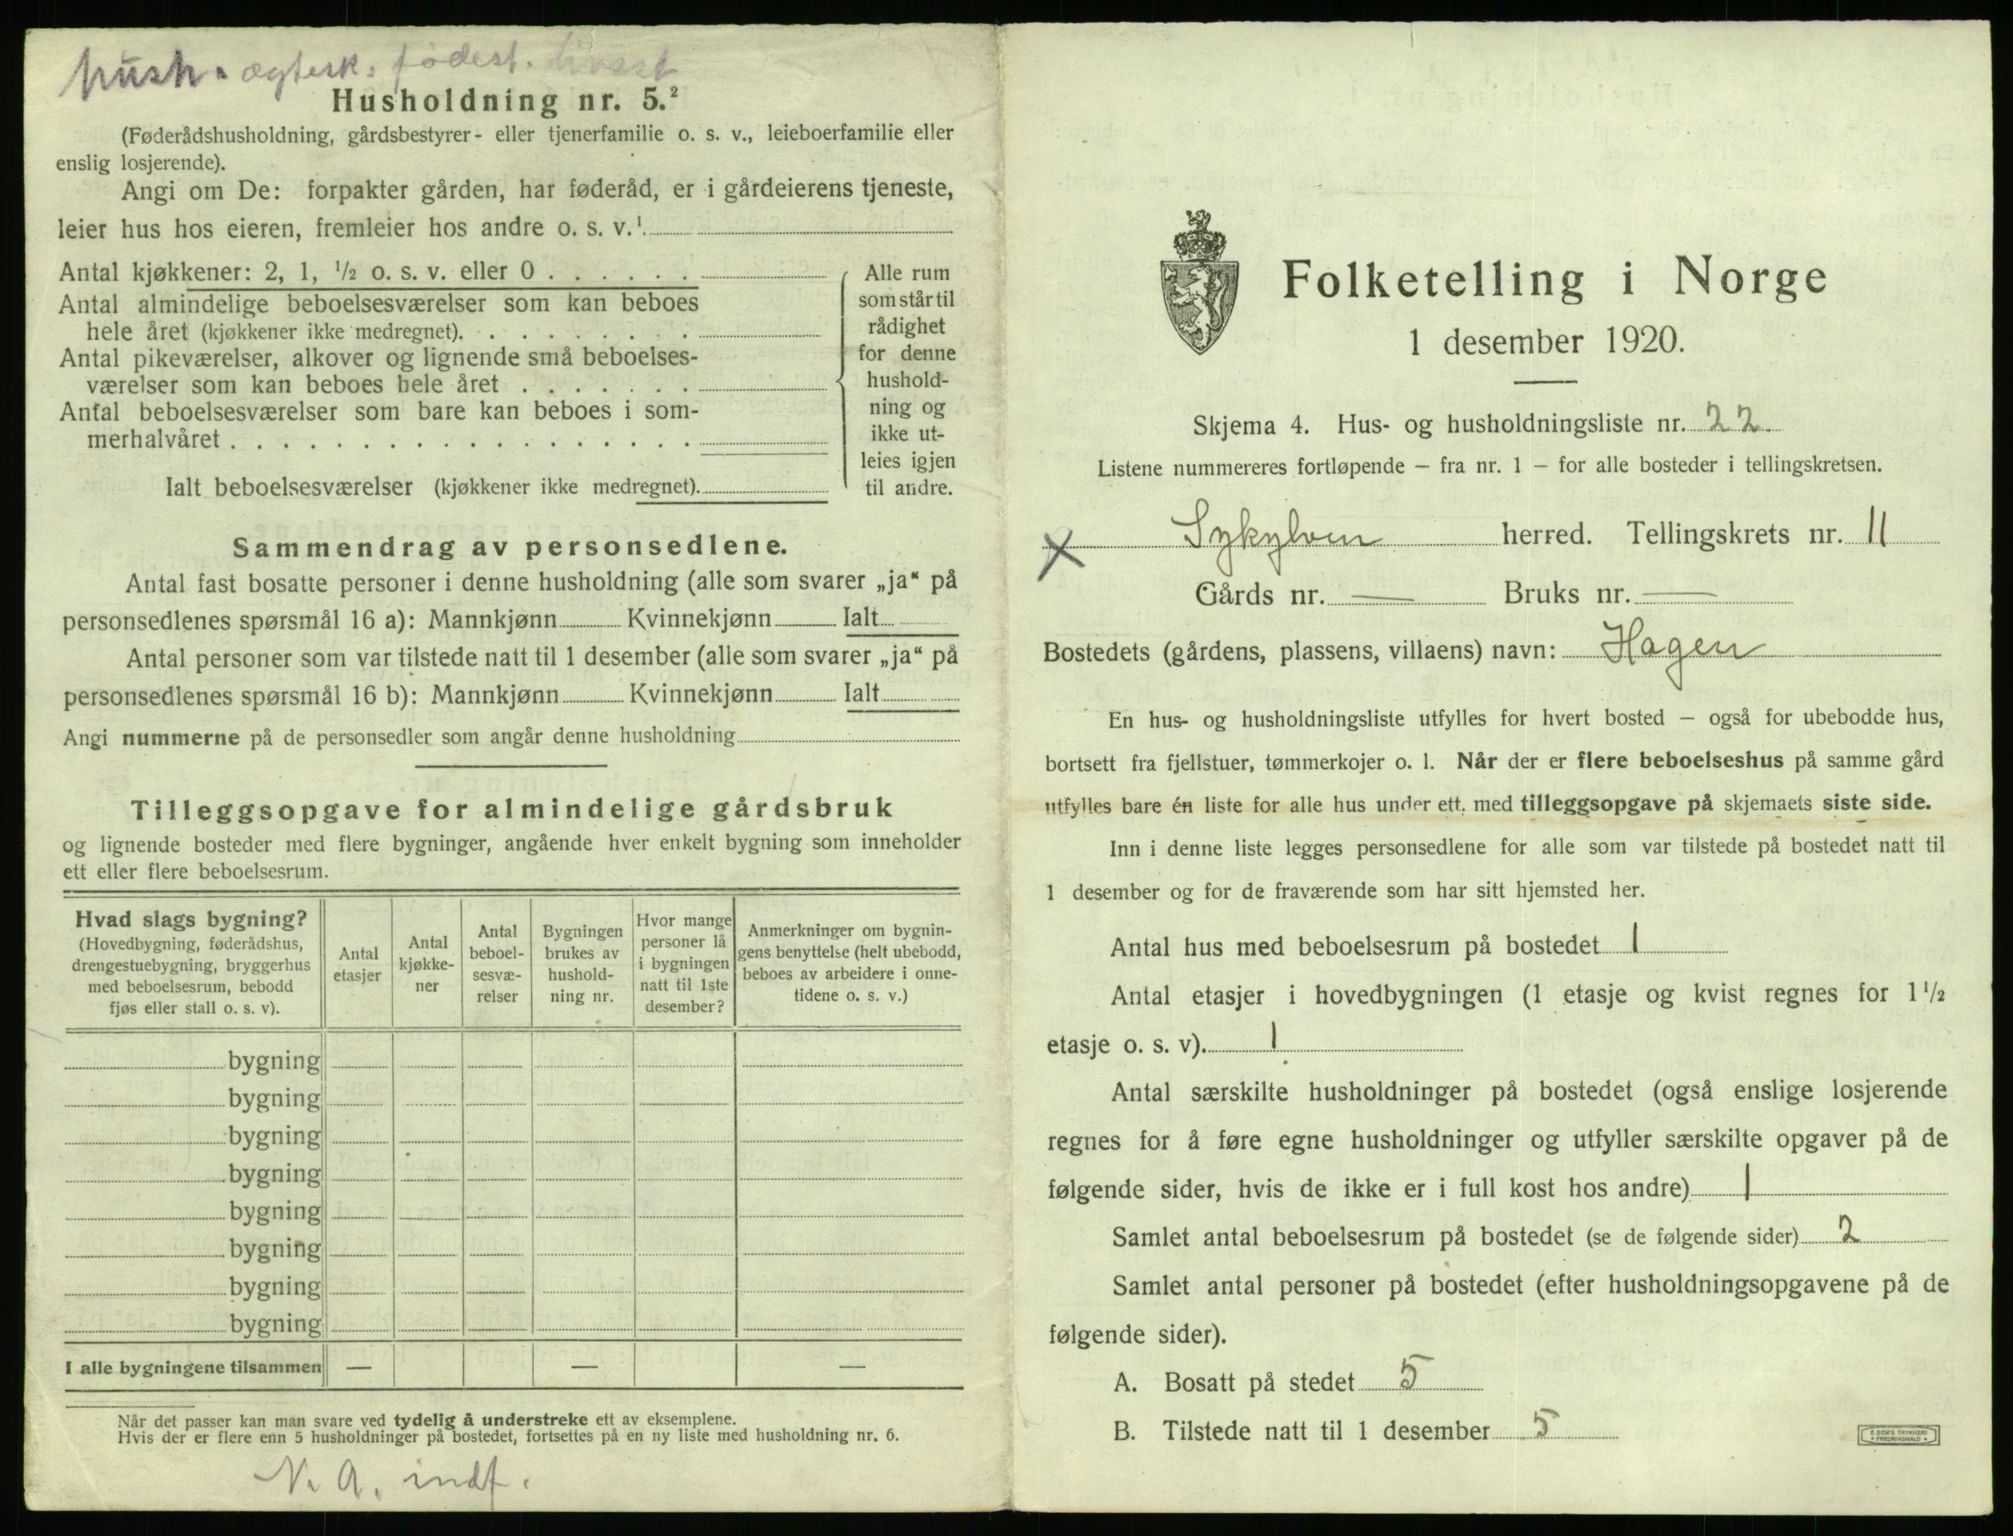 hush. ægtesk. fødest.
Husholdning nr. 5.²
(Føderådshusholdning, gårdsbestyrer- eller tjenerfamilie o. s. v., leieboerfamilie eller
enslig losjerende).
Angi om De: forpakter gården, har føderåd, er i gårdeierens tjeneste,
leier hus hos eieren, fremleier hos andre o. s. v.¹
Antal kjøkkener: 2, 1, ½ o. s. v. eller 0
Antal almindelige beboelsesværelser som kan beboes
hele året (kjøkkener ikke medregnet).
Antal pikeværelser, alkover og lignende små beboelses-
værelser som kan beboes hele året
Antal beboelsesværelser som bare kan beboes i som-
merhalvåret
Ialt beboelsesværelser (kjøkkener ikke medregnet).
Alle rum
som står til
rådighet
for denne
hushold-
ning og
ikke ut-
leies igjen
til andre.
Sammendrag av personsedlene.
Antal fast bosatte personer i denne husholdning (alle som svarer „ja“ på
personsedlenes spørsmål 16 a): Mannkjønn Kvinnekjønn Ialt
Antal personer som var tilstede natt til 1 desember (alle som svarer „ja“ på
personsedlenes spørsmål 16 b): Mannkjønn Kvinnekjønn Ialt
Angi nummerne på de personsedler som angår denne husholdning
Tilleggsopgave for almindelige gårdsbruk
og lignende bosteder med flere bygninger, angående hver enkelt bygning som inneholder
ett eller flere beboelsesrum.
Hvad slags bygning?
(Hovedbygning, føderådshus,
drengestuebygning, bryggerhus
med beboelsesrum, bebodd
fjøs eller stall o. s. v).
Antal
etasjer
Antal
kjøkke-
ner
Antal
beboel-
sesvæ-
relser
Bygningen
brukes av
hushold-
ning nr.
Hvor mange
personer lå
i bygningen
natt til 1ste
desember?
Anmerkninger om bygnin-
gens benyttelse (helt ubebodd,
beboes av arbeidere i onne-
tidene o. s. v.)
bygning
bygning
bygning
bygning
bygning
bygning
bygning
bygning
I alle bygningene tilsammen — — —
Når det passer kan man svare ved tydelig å understreke ett av eksemplene.
Hvis der er flere enn 5 husholdninger på bostedet, fortsettes på en ny liste med husholdning nr. 6.
N. A. indf.
Folketelling i Norge
1 desember 1920.
Skjema 4. Hus- og husholdningsliste nr. 22.
Listene nummereres fortløpende – fra nr. 1 – for alle bosteder i tellingskretsen.
X Sykylven herred. Tellingskrets nr. 11
Gårds nr. — Bruks nr. —
Bostedets (gårdens, plassens, villaens) navn: Hagen
En hus- og husholdningsliste utfylles for hvert bosted – også for ubebodde hus,
bortsett fra fjellstuer, tømmerkojer o. l. Når der er flere beboelseshus på samme gård
utfylles bare én liste for alle hus under ett, med tilleggsopgave på skjemaets siste side.
Inn i denne liste legges personsedlene for alle som var tilstede på bostedet natt til
1 desember og for de fraværende som har sitt hjemsted her.
Antal hus med beboelsesrum på bostedet 1
Antal etasjer i hovedbygningen (1 etasje og kvist regnes for 1½
etasje o. s. v). 1
Antal særskilte husholdninger på bostedet (også enslige losjerende
regnes for å føre egne husholdninger og utfyller særskilte opgaver på de
følgende sider, hvis de ikke er i full kost hos andre) 1
Samlet antal beboelsesrum på bostedet (se de følgende sider) 2
Samlet antal personer på bostedet (efter husholdningsopgavene på de
følgende sider).
A. Bosatt på stedet 5
B. Tilstede natt til 1 desember 5
E. SEM'S TRYKKERI
FREDRIKSHALD